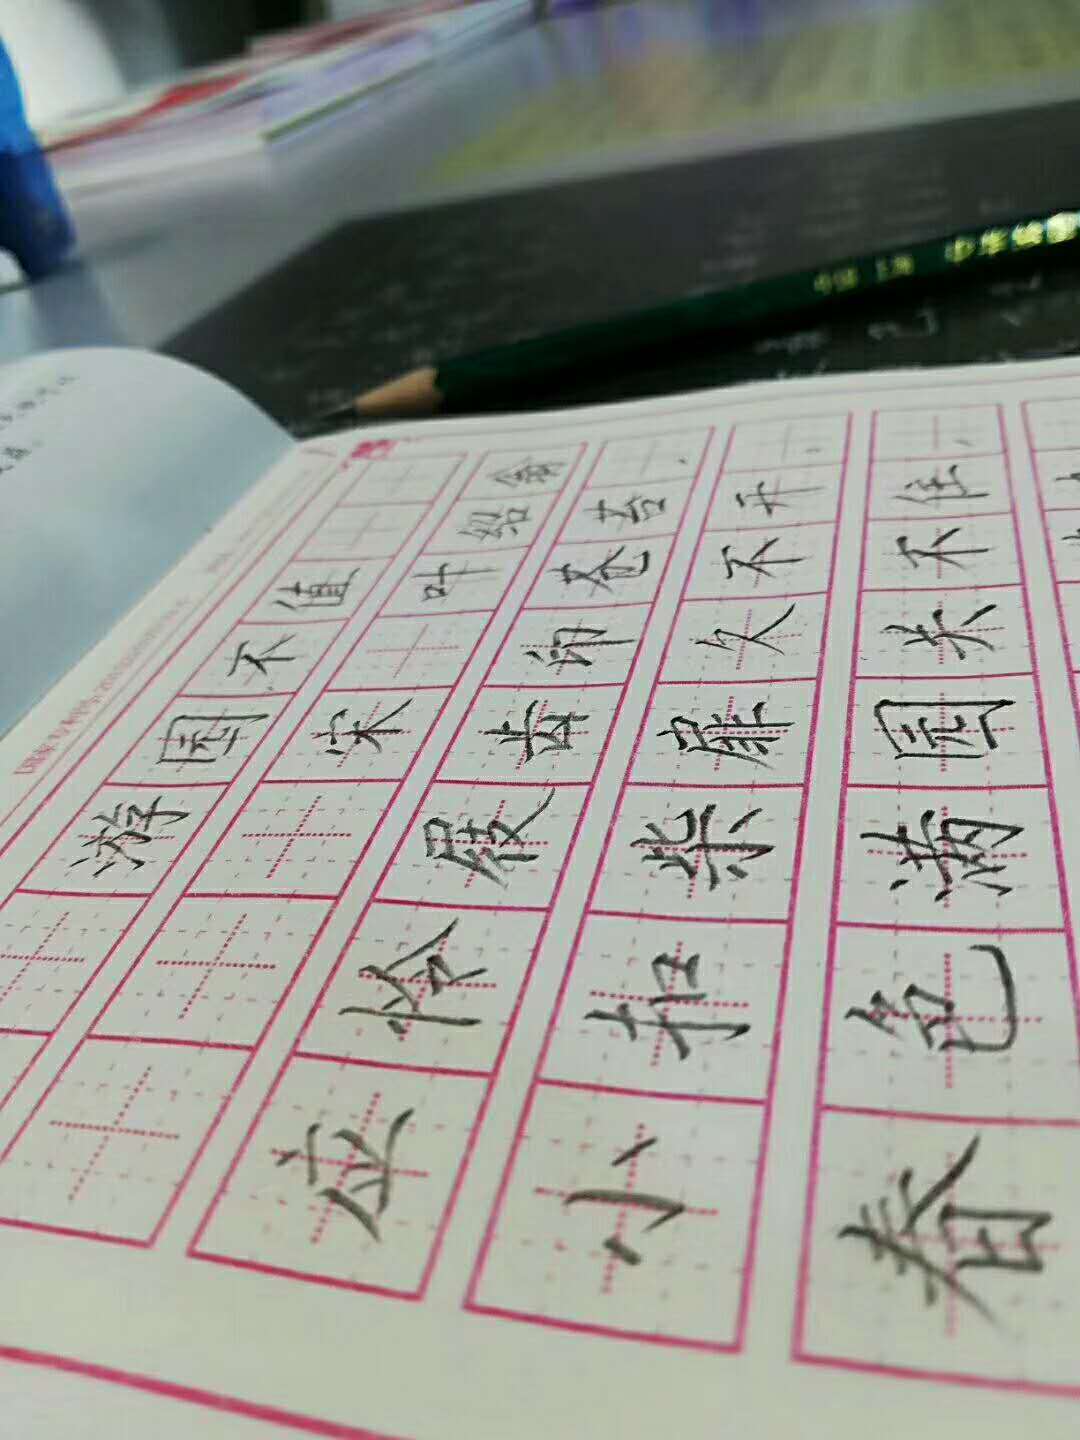 游园不值
宋 叶绍翁
应怜屐齿印苍苔,
小扣柴扉久不开。
春色满园关不住,
中国 上海 中华绘图